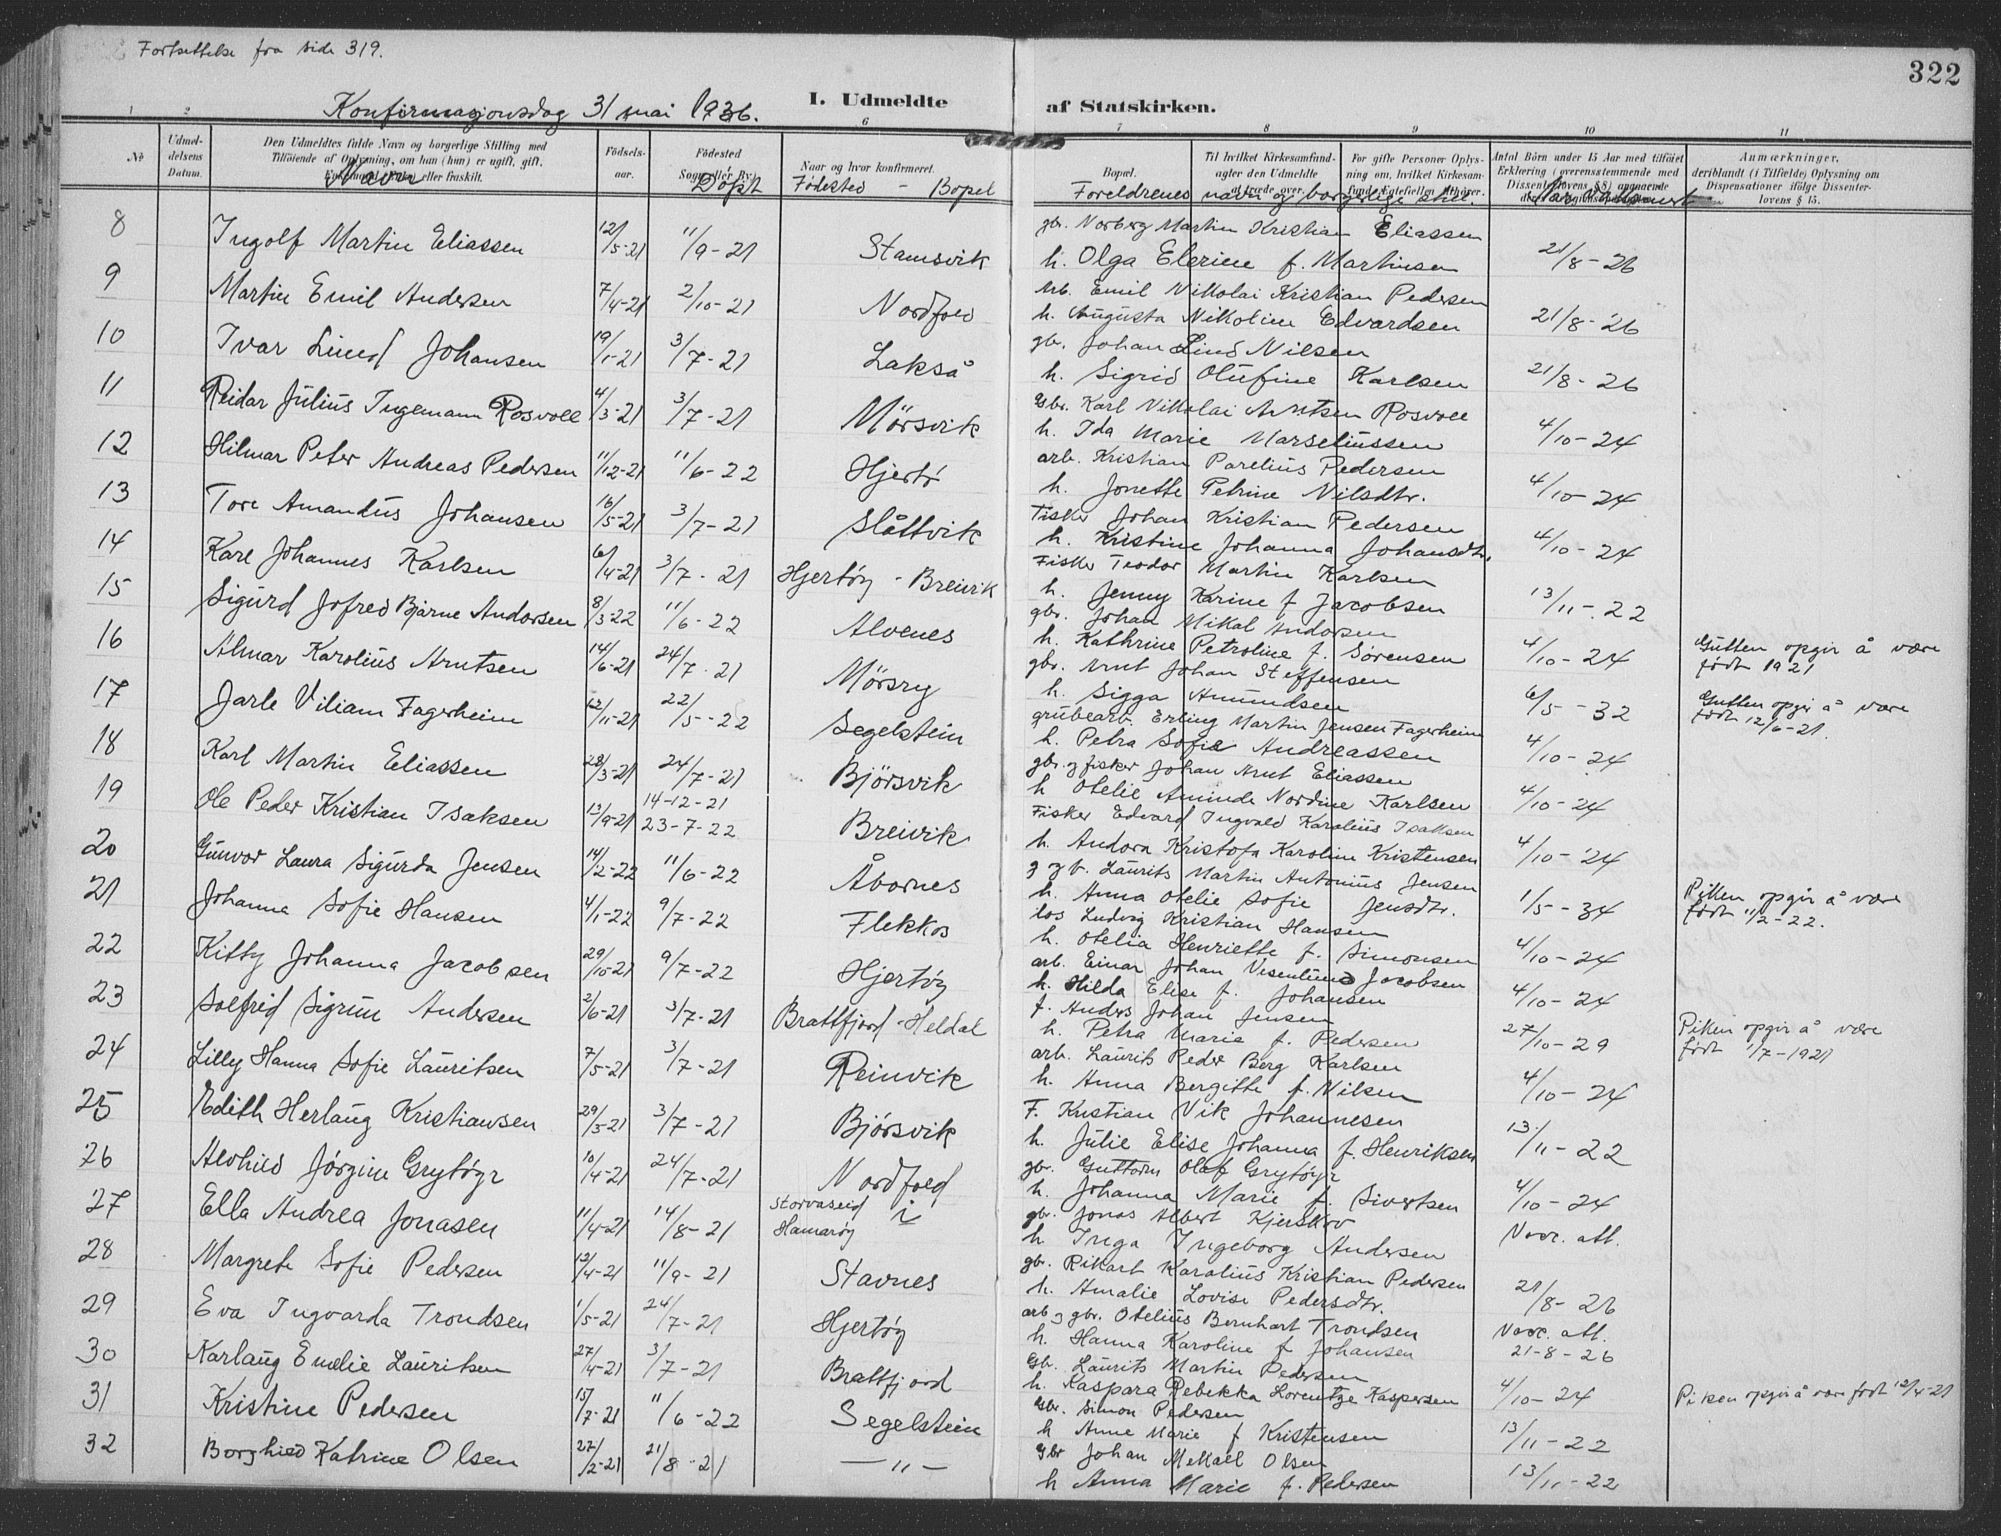 Fortsettelse fra side 319.
322
Konfirmasjonsdag 31 mai 1936.
I. Udmeldte af Statskirken.
1 2 6 7 8 9 10 11
№ Udmeldelsens Datum. Den Udmeldtes fulde Navn og borgerlige Stilling med Tilføiende af Oplysning, om han (hun) er ugift, gift, eller fraskilt. Fødselsaar. Fødested Naar og hvor konfirmeret. Bopæl. Til hvilket Kirkesamfund agter den Udmeldte at træde over. For gifte Personer Oplysning om, hvilket Kirkesamfund Ægtefællen tilhører. Antal Børn under 15 Aar med tilføiet Erklæring (overensstemmende med Dissenterlovens § 8) angaaende Anmærkninger, deriblandt (i Tilfælde) Oplysning om Dispensationer ifølge Dissenterlovens § 15.
Navn Døpt Fødested - Bopel Foreldrenes navn og borgerlige still. Når vaksinert
8 Ingolf Martin Eliassen 12/5-21 11/9-21 Stamsvik gbr. Norberg Martin Kristian Eliassen
h. Olga Elerine f. Martinsen 21/8-26
9 Martin Emil Andersen 7/4-21 2/10-21 Nordfold Arb. Emil Nikolai Kristian Pedersen
h. Augusta Nikoline Edvardsen 21/8-26
10 Ivar Lind Johansen 19/1-21 3/7-21 Lakså gbr. Johan Lind Nilsen
h. Sigrid Olufine Karlsen 21/8-26
11 Reidar Julius Ingemann Rosvoll 4/3-21 3/7-21 Mørsvik Gbr. Karl Nikolai Arntsen Rosvoll
h. Ida Marie Marseliussen 4/10-24
12 Hilmar Peter Andreas Pedersen 11/12-21 11/6-22 Hjertø arb. Kristian Parelius Pedersen
h. Jonette Petrine Nilsdtr. 4/10-24
13 Tore Amandus Johansen 16/5-21 3/7-21 Slåttvik Fisker Johan Kristian Pedersen
h. Kristine Johanna Johansdtr. 4/10-24
14 Karl Johannes Karlsen 6/4-21 3/7-21 Hjertøy - Breivik Fisker Teodor Martin Karlsen
h. Jenny Karine f Jacobsen 13/11-22
15 Sigurd Jofred Bjarne Andorsen 8/3-22 11/6-22 Alvenes gbr. Johan Mikal Andorsen
h. Kathrine Petroline f. Sørensen 4/10-24 Gutten opgir å være født 1921
16 Almar Karolius Arntsen 14/6-21 24/7-21 Mørsry gbr. Arnt Johan Steffensen
h. Sigga Amundsen 6/5-32 Gutten opgir å være født 12/6-21.
17 Jarle Viliam Fagerheim 12/11-21 22/5-22 Segelstein grubearb. Erling Martin Jensen Fagerheim
h. Petra Sofie Andreassen 4/10-24
18 Karl Martin Eliassen 28/3-21 24/7-21 Bjørsvik gbr. og fisker Johan Arnt Eliassen
h Otelie Aminde Nordine Karlsen 4/10-24
19 Ole Peder Kristian Isaksen 13/9-21 14-12-21 23-7-22 Breivik Fisker Edvard Ingvald Karolius Isaksen
h. Andora Kristofa Karoline Kristensen 4/10-24
20 Gunvor Laura Sigurda Jensen 14/2-22 11/6-22 Åbornes g og b. Laurits Martin Antonius Jensen
h. Anna Otelie Sofie Jensdtr. 1/5-34 Piken opgir å være født 11/2-22.
21 Johanna Sofie Hansen 4/1-22 9/7-22 Flekkos los Ludvig Kristian Hansen
h. Otelia Henriette f. Simonsen 4/10-24
22 Kitty Johanna Jacobsen 29/10-21 9/7-22 Hjertøy arb. Einar Johan Visenlund Jacobsen
h. Hilda Elise f. Johansen 4/10-24
23 Solfrid Sigrun Andersen 2/6-21 3/7-21 Brattfjord - Heldal f. Anders Johan Jensen
h. Petra Maria f. Pedersen 27/10-29 Piken opgir å være født 1/7-1921
24 Lilly Hanna Sofie Lauritsen 7/5-21 3/7-21 Reinvik arb. Laurits Peder Berg Karlsen
h. Anna Bergitte f. Nilsen 4/10-24
25 Edith Herlaug Kristiansen 29/3-21 3/7-21 Bjørsvik F. Kristian Vik Johannesen
h. Julie Elise Johanna f. Henriksen 13/11-22
26 Alvhild Jørgine Grytøyr 10/4-21 24/7-21 Nordfold gbr. Guttorm Olaf Grytøyr
h. Johanna Marie f. Sivertsen 4/10-24
27 Ella Andrea Jonasen 11/4-21 14/8-21 Storvaseid i Hamarøy gbr. Jonas Albert Kjerskov
h Inga Ingeborg Andersen Navr. att.
28 Margrete Sofie Pedersen 13/4-21 11/9-21 Stavnes gbr. Rikart Karolius Kristian Pedersen
h. Amalie Lovise Pedersdtr. 21/8-26
29 Eva Ingvarda Trondsen 1/5-21 24/7-21 Hjertøy arb og gbr. Otelius Bernhart Trondsen
h. Hanna Karoline f Johansen Navr. att. 21-8-26
30 Karlaug Emelie Lauritsen 27/4-21 3/7-21 Brattfjord Gbr. Laurits Martin Pedersen
h. Kaspara Rebekka Lorentze Kaspersen 4/10-24 Piken opgir å være født 12/4-21
31 Kristine Pedersen 15/7-21 11/6-22 Segelstein Gbr. Simon Pedersen
h Anne Marie f Kristensen 13/11-22
32 Borghild Katrine Olsen 27/2-21 21/8-21 — " — Gbr Johan Mekael Olsen
h Anna Marie f. Pedersen 13/11-22